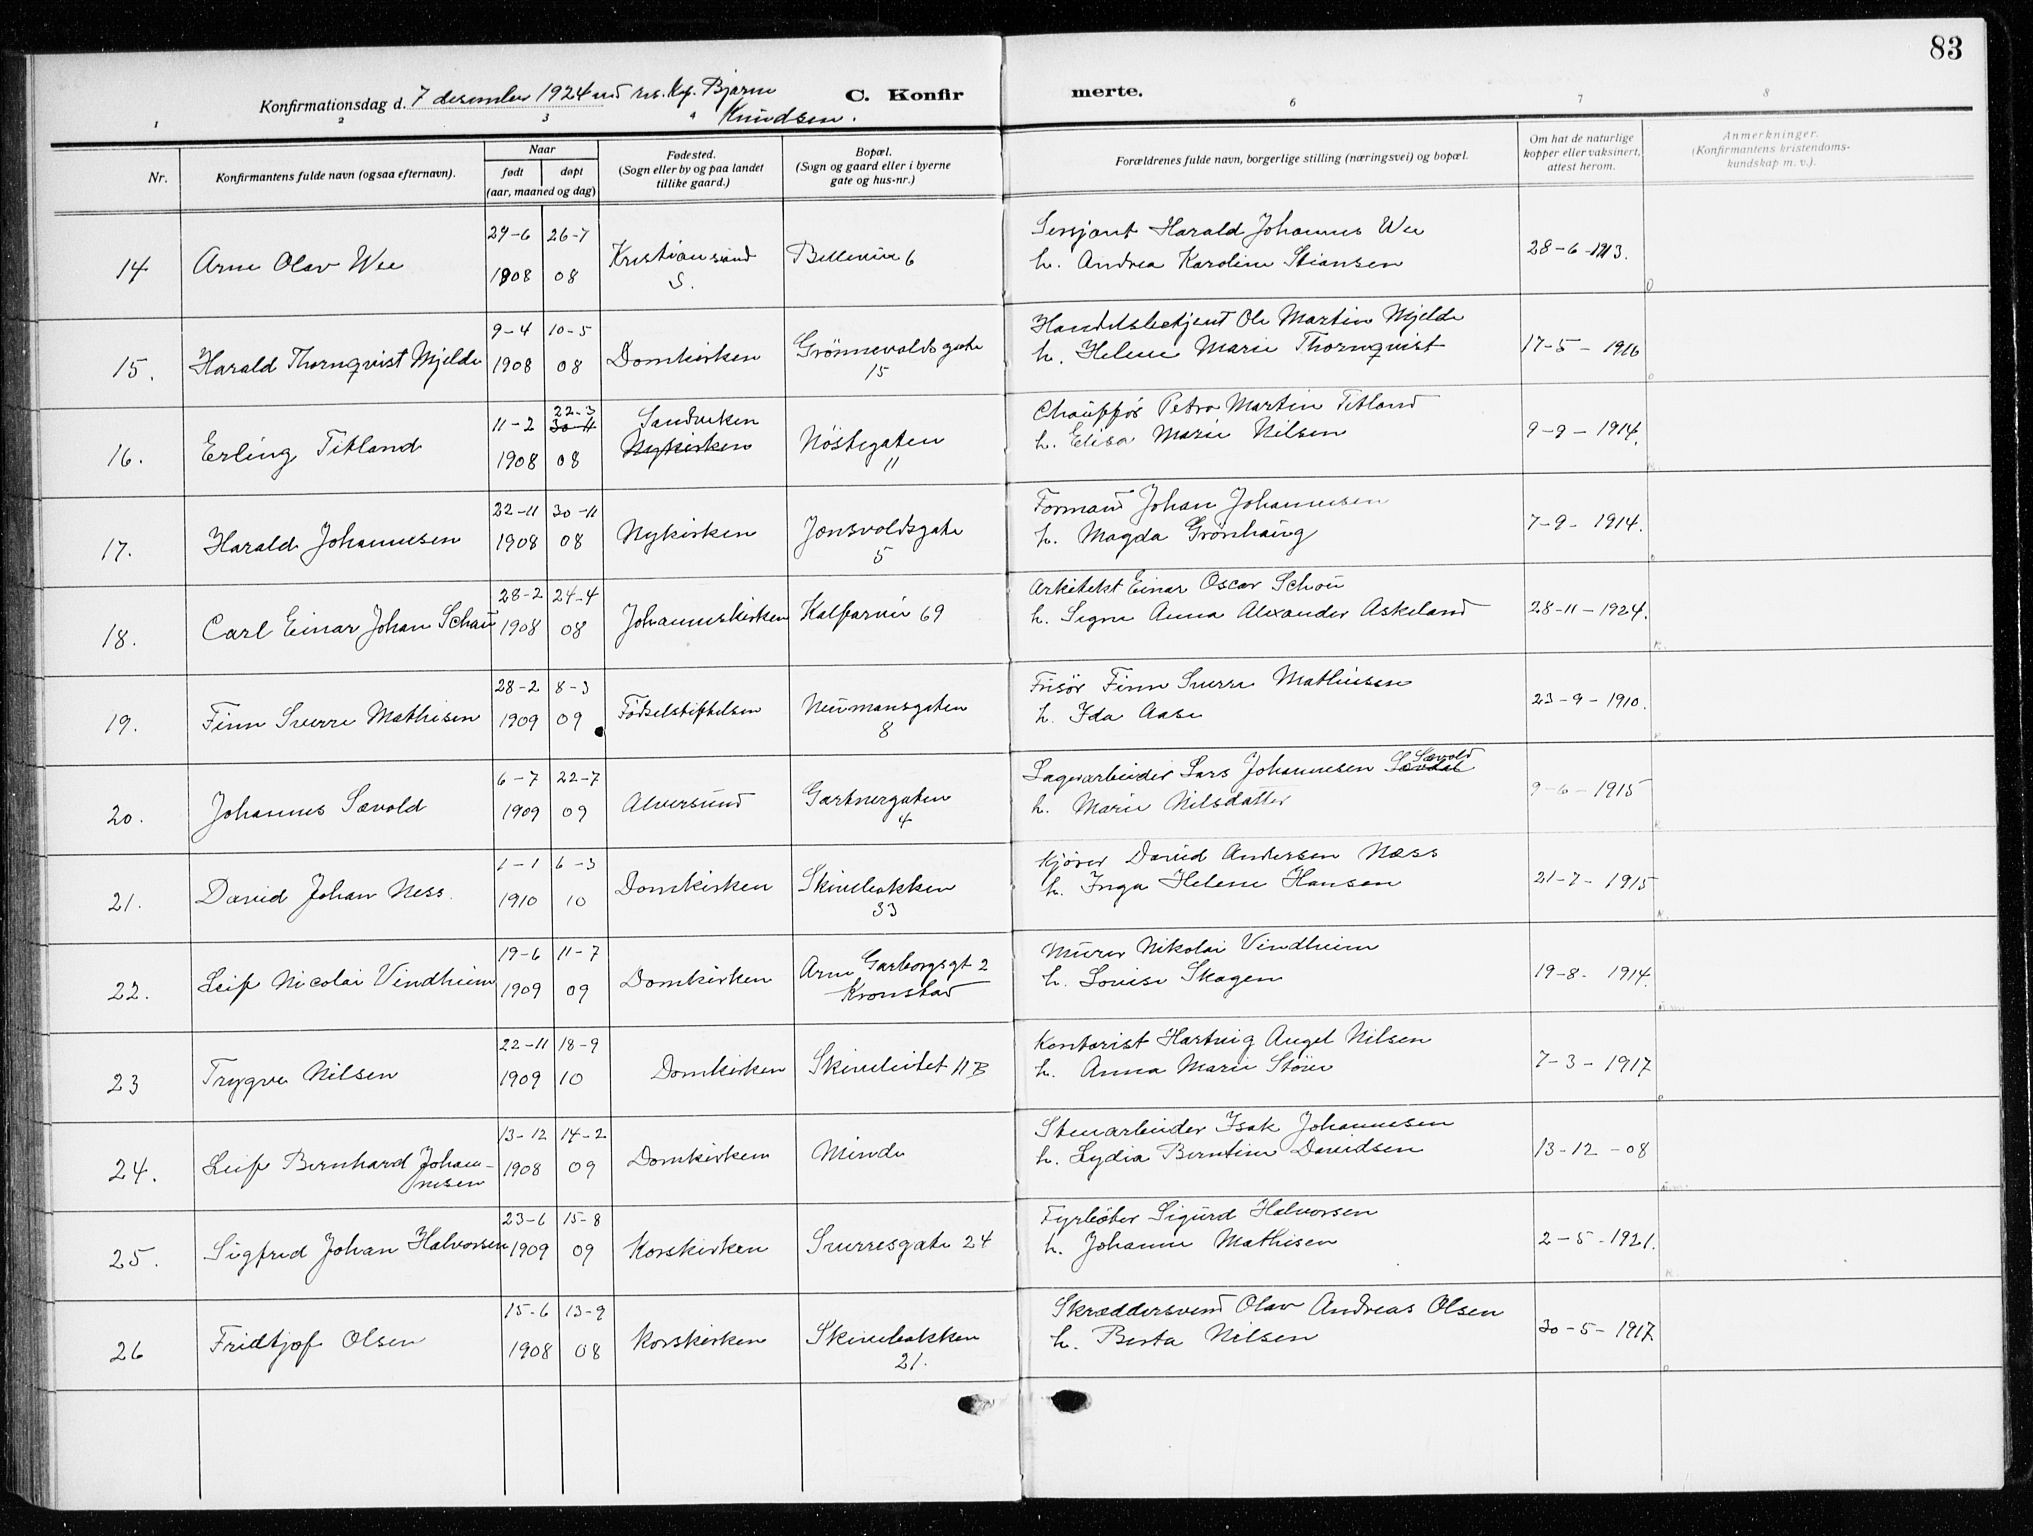 83
Konfirmationsdag d. 7 desember 1924 ved res. Kap. Bjarne Knudsen.
C. Konfirmerte.
1 2 3 4 6 7 8
Nr.
Konfirmantens fulde navn (ogsaa efternavn).
Naar
født døpt
(aar, maaned og dag)
Fødested.
(Sogn eller by og paa landet
tillike gaard.)
Bopæl.
(Sogn og gaard eller i byerne
gate og hus-nr.)
Forældrenes fulde navn, borgerlige stilling (næringsvei) og bopæl.
Om hat de naturlige
kopper eller vaksinert,
attest herom.
Anmerkninger.
(Konfirmantens kristendoms-
kundskap m. v.).
14 Arne Olav Wee 29-6 1908 26-7 08 Kristiansund S. Bellevue 6
Sersjant Harald Johannes Wee
h. Andrea Karoline Stiansen
28-6-1913.
15. Harald Thornqvist Mjelde 9-4 1908 10-5 08 Domkirken Grönnevoldsgate 15
Handelsbetjent Ole Martin Mjelde
h. Helene Marie Thornqvist
17-5-1916
16. Erling Titland 11-2 1908 22-3 30-11 08 Sandviken Nykirken Nöstegaten 11
Chaufför Petro Martin Titland
h. Elisa Marie Nilsen
9-9-1914.
17. Harald Johannesen 22-11 1908 30-11 08 Nykirken Jonsvoldsgate 5
Formand Johan Johannesen
h. Magda Grönhaug
7-9-1914.
18. Carl Einar Johan Schau 28-2 1908 24-4 08 Johanneskirken Kalfarvei 69
Arkitekt Einar Oscar Schou
h. Signe Anna Alexander Askeland
28-11-1924.
19. Finn Sverre Mathisen 28-2 1909 8-3 09 Födselstiftelsen Neumansgaten 8
Frisör Finn Sverre Mathiesen
h. Ida Aase
23-9-1910.
20. Johannes Sævold 6-7 1909 22-7 09 Alversund Gartnergaten 4
Lagerarbeider Lars Johannesen Sævdal Sævold
h. Marie Nilsdatter
9-6-1915
21. David Johan Ness. 1-1 1910 6-3 10 Domkirken Skivebakken 33
Kjörer David Andersen Næss
h. Inga Helene Hansen
21-7-1915
22. Leif Nicolai Vindheim 19-6 1909 11-7 09 Domkirken Arne Garborgsgt 2 Kronstad
Murer Nikolai Vindheim
h. Lovise Skagen
19-8-1914.
23 Trygve Nilsen 22-11 1909 18-9 10 Domkirken Skivebeitet 11 B
Kontorist Hartvig Angel Nilsen
h. Anna Marie Störer
7-3-1917
24. Leif Bernhard Johannesen 13-12 1908 14-2 09 Domkirken Minde
Stenarbeider Isak Johannesen
h. Lydia Berntine Davidsen
13-12-08
25. Sigfred Johan Halvorsen 23-6 1909 15-8 09 Korskirken Sverresgate 24
Fyrböter Sigurd Halvorsen
h. Johanne Mathisen
2-5-1921.
26 Fridtjof Olsen 15-6 1908 13-9 08 Korskirken Skivebakken 21.
Skræddersvend Olav Andreas Olsen
h. Berta Nilsen
30-5-1917